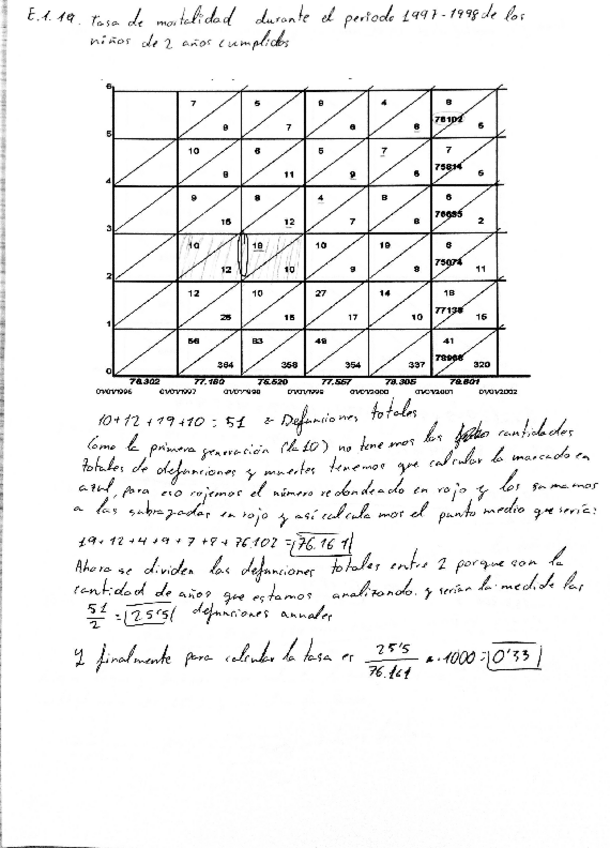 E.1.19. Tasa de mortalidad durante el periodo 1997-1998 de los
niños de 2 años cumplidos
6
7 5 9 4 8
76102
9 7 6 6 5
5
10 6 5 7 7
75814
8 11 9 6 5
4
9 8 4 8 6
76635
15 12 7 6 2
3
10 19 10 19 6
75074
12 10 9 8 11
2
12 10 27 14 18
77138
25 15 17 10 15
1
56 83 49 41
78966
384 358 354 337 320
0
76.302 77.180 76.520 77.557 78.305 79.601
01/01/1996 01/01/1997 01/01/1998 01/01/1999 01/01/2000 01/01/2001 01/01/2002
10+12+19+10 = 51 = Defunciones totales
Como la primera generación (la 10) no tenemos las cantidades
totales de defunciones y muertes tenemos que calcular la marcada en
azul, para eso cojemos el número redondeado en rojo y los sumamos
a las subrayadas en rojo y así calculamos el punto medio que sería:
19+12+4+9+7+8+76.102 = 76.161
Ahora se dividen las defunciones totales entre 2 porque son la
cantidad de años que estamos analizando. y serían la media de las
51/2 = 25'5 defunciones anuales
Y finalmente para calcular la tasa es 25'5/76.161 · 1000 = 0'33